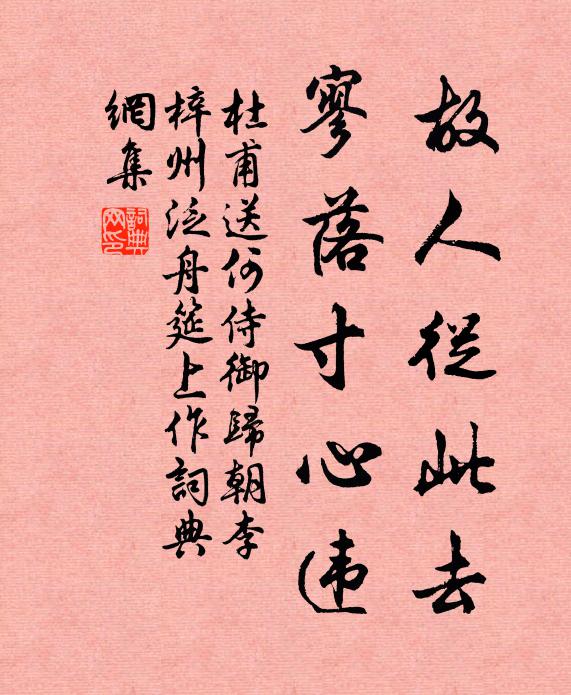 故人從此去
寥落寸心违
杜甫送何侍御歸朝李
梓州泛舟筵上作詞典
網集
詞典
网印